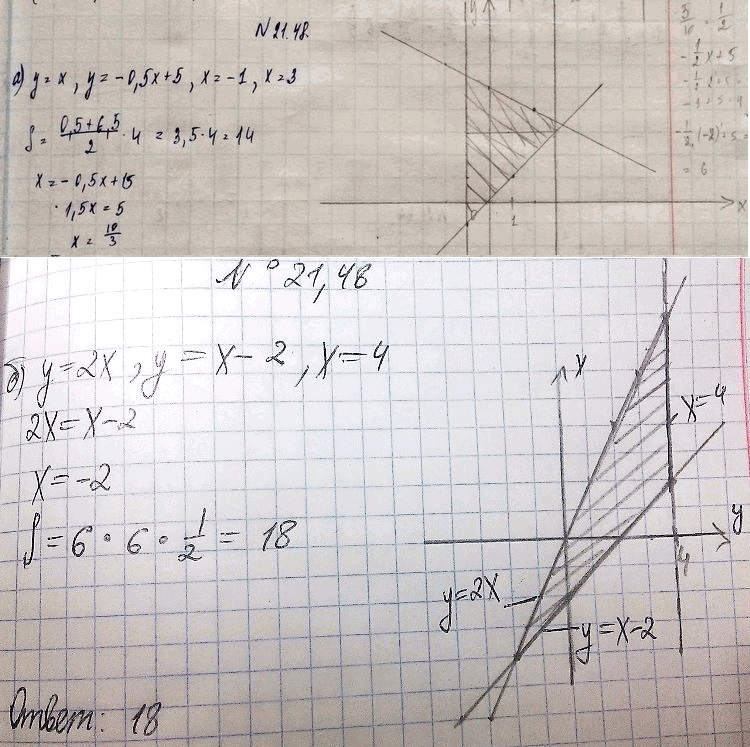 N 21.48.
а) y = x , y = -0,5x+5 , x = -1 , x = 3
S = (0,5+6,5)/2 · 4 = 3,5·4 = 14
x = -0,5x+5
1,5x = 5
x = 10/3
y
x
1
5/10 · 1/2
-1/2x+5
= 6
N° 21,48
б) y=2x , y = x-2 , x=4
2x = x-2
x = -2
S = 6 · 6 · 1/2 = 18
x
x=4
y
4
y=2x
y=x-2
Ответ: 18